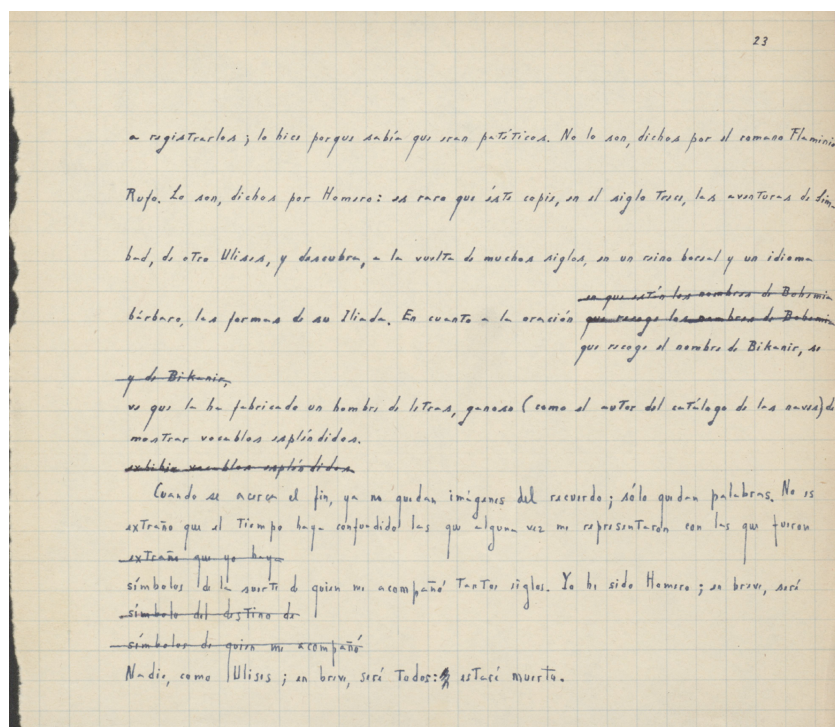 23
a registrarlos; lo hice porque sabía que eran patéticos. No lo son, dichos por el romano Flaminio
Rufo. Lo son, dichos por Homero: es raro que éste copie, en el siglo trece, las aventuras de Sim-
bad, de otro Ulises, y descubra, a la vuelta de muchos siglos, en un reino boreal y un idioma
en que están los nombres de Bohemia
bárbaro, las formas de su Ilíada. En cuanto a la oración que recoge los nombres de Bohemia
que recoge el nombre de Bikanir, se
y de Bikanir,
ve que la ha fabricado un hombre de letras, ganoso (como el autor del catálogo de las naves) de
mostrar vocablos espléndidos.
exhibir vocablos espléndidos.
Cuando se acerca el fin, ya no quedan imágenes del recuerdo; sólo quedan palabras. No es
extraño que el tiempo haya confundido las que alguna vez me representaron con las que fueron
extraño que yo haya
símbolos de la suerte de quien me acompañó tantos siglos. Yo he sido Homero; en breve, seré
símbolo del destino de
símbolos de quien me acompañó
Nadie, como Ulises; en breve, seré todos: estaré muerto.